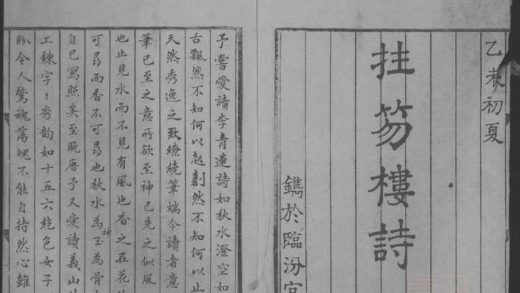 乙未初夏
拄笏樓詩
鐫於臨汾官
予嘗愛讀李青蓮詩如秋水澄空如
古飄然不知何以起劃然不知何以止
天然秀逸之致繚繞筆端令讀者意
筆已至之意所欲至神已先之似風
也止見水而不見有風也香之在花
可尋而香不可尋也秋水為神玉為骨
自已寫照矣至晚唐予又愛讀義山
工鍊字〻秀韵如十五六絕色女子
令人驚魂蕩魄不能自持然心雖